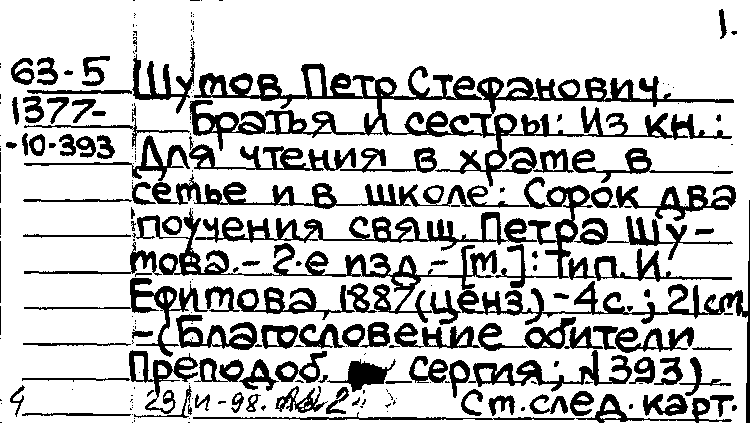 1.
63-5 Шумов, Петр Стефанович.
1377- Братья и сестры: Из кн.:
-10-393 Для чтения в храме, в
семье и в школе: Сорок два
поучения свящ. Петра Шу-
мова. - 2-е изд. - [М.]: Тип. И.
Ефимова, 1887 (ценз.). - 4 с.; 21 см.
- (Благословение обители
Преподоб. Сергия; N 393).
4 23/VI-98. См. след. карт.